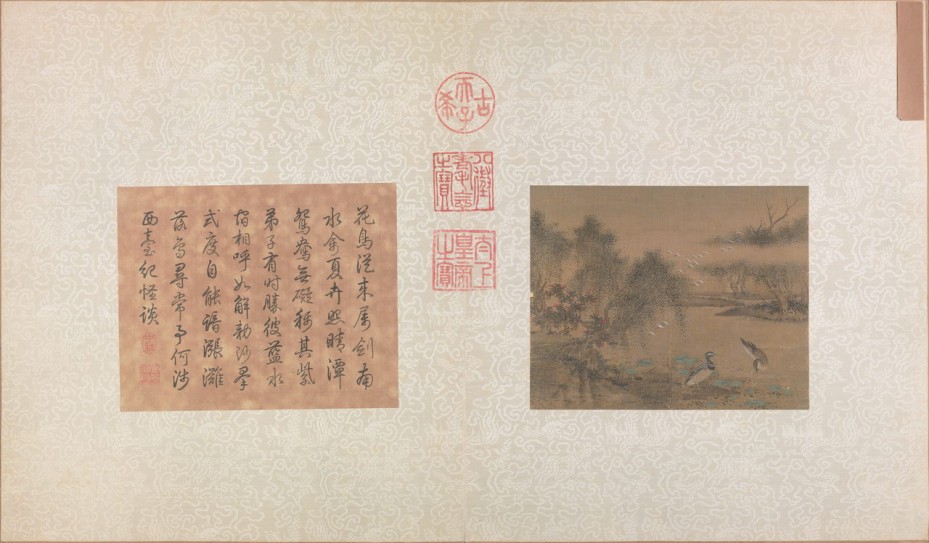 古希天子
八徵耄念之寶
太上皇帝之寶
花鳥從来屬劍南
水禽夏卉照晴潭
鴛鴦無礙稱其紫
弟子有時勝彼藍水
宿相呼如解勅沙羣
式度自能諳漲灘
落為尋常事何涉
西臺紀怪談